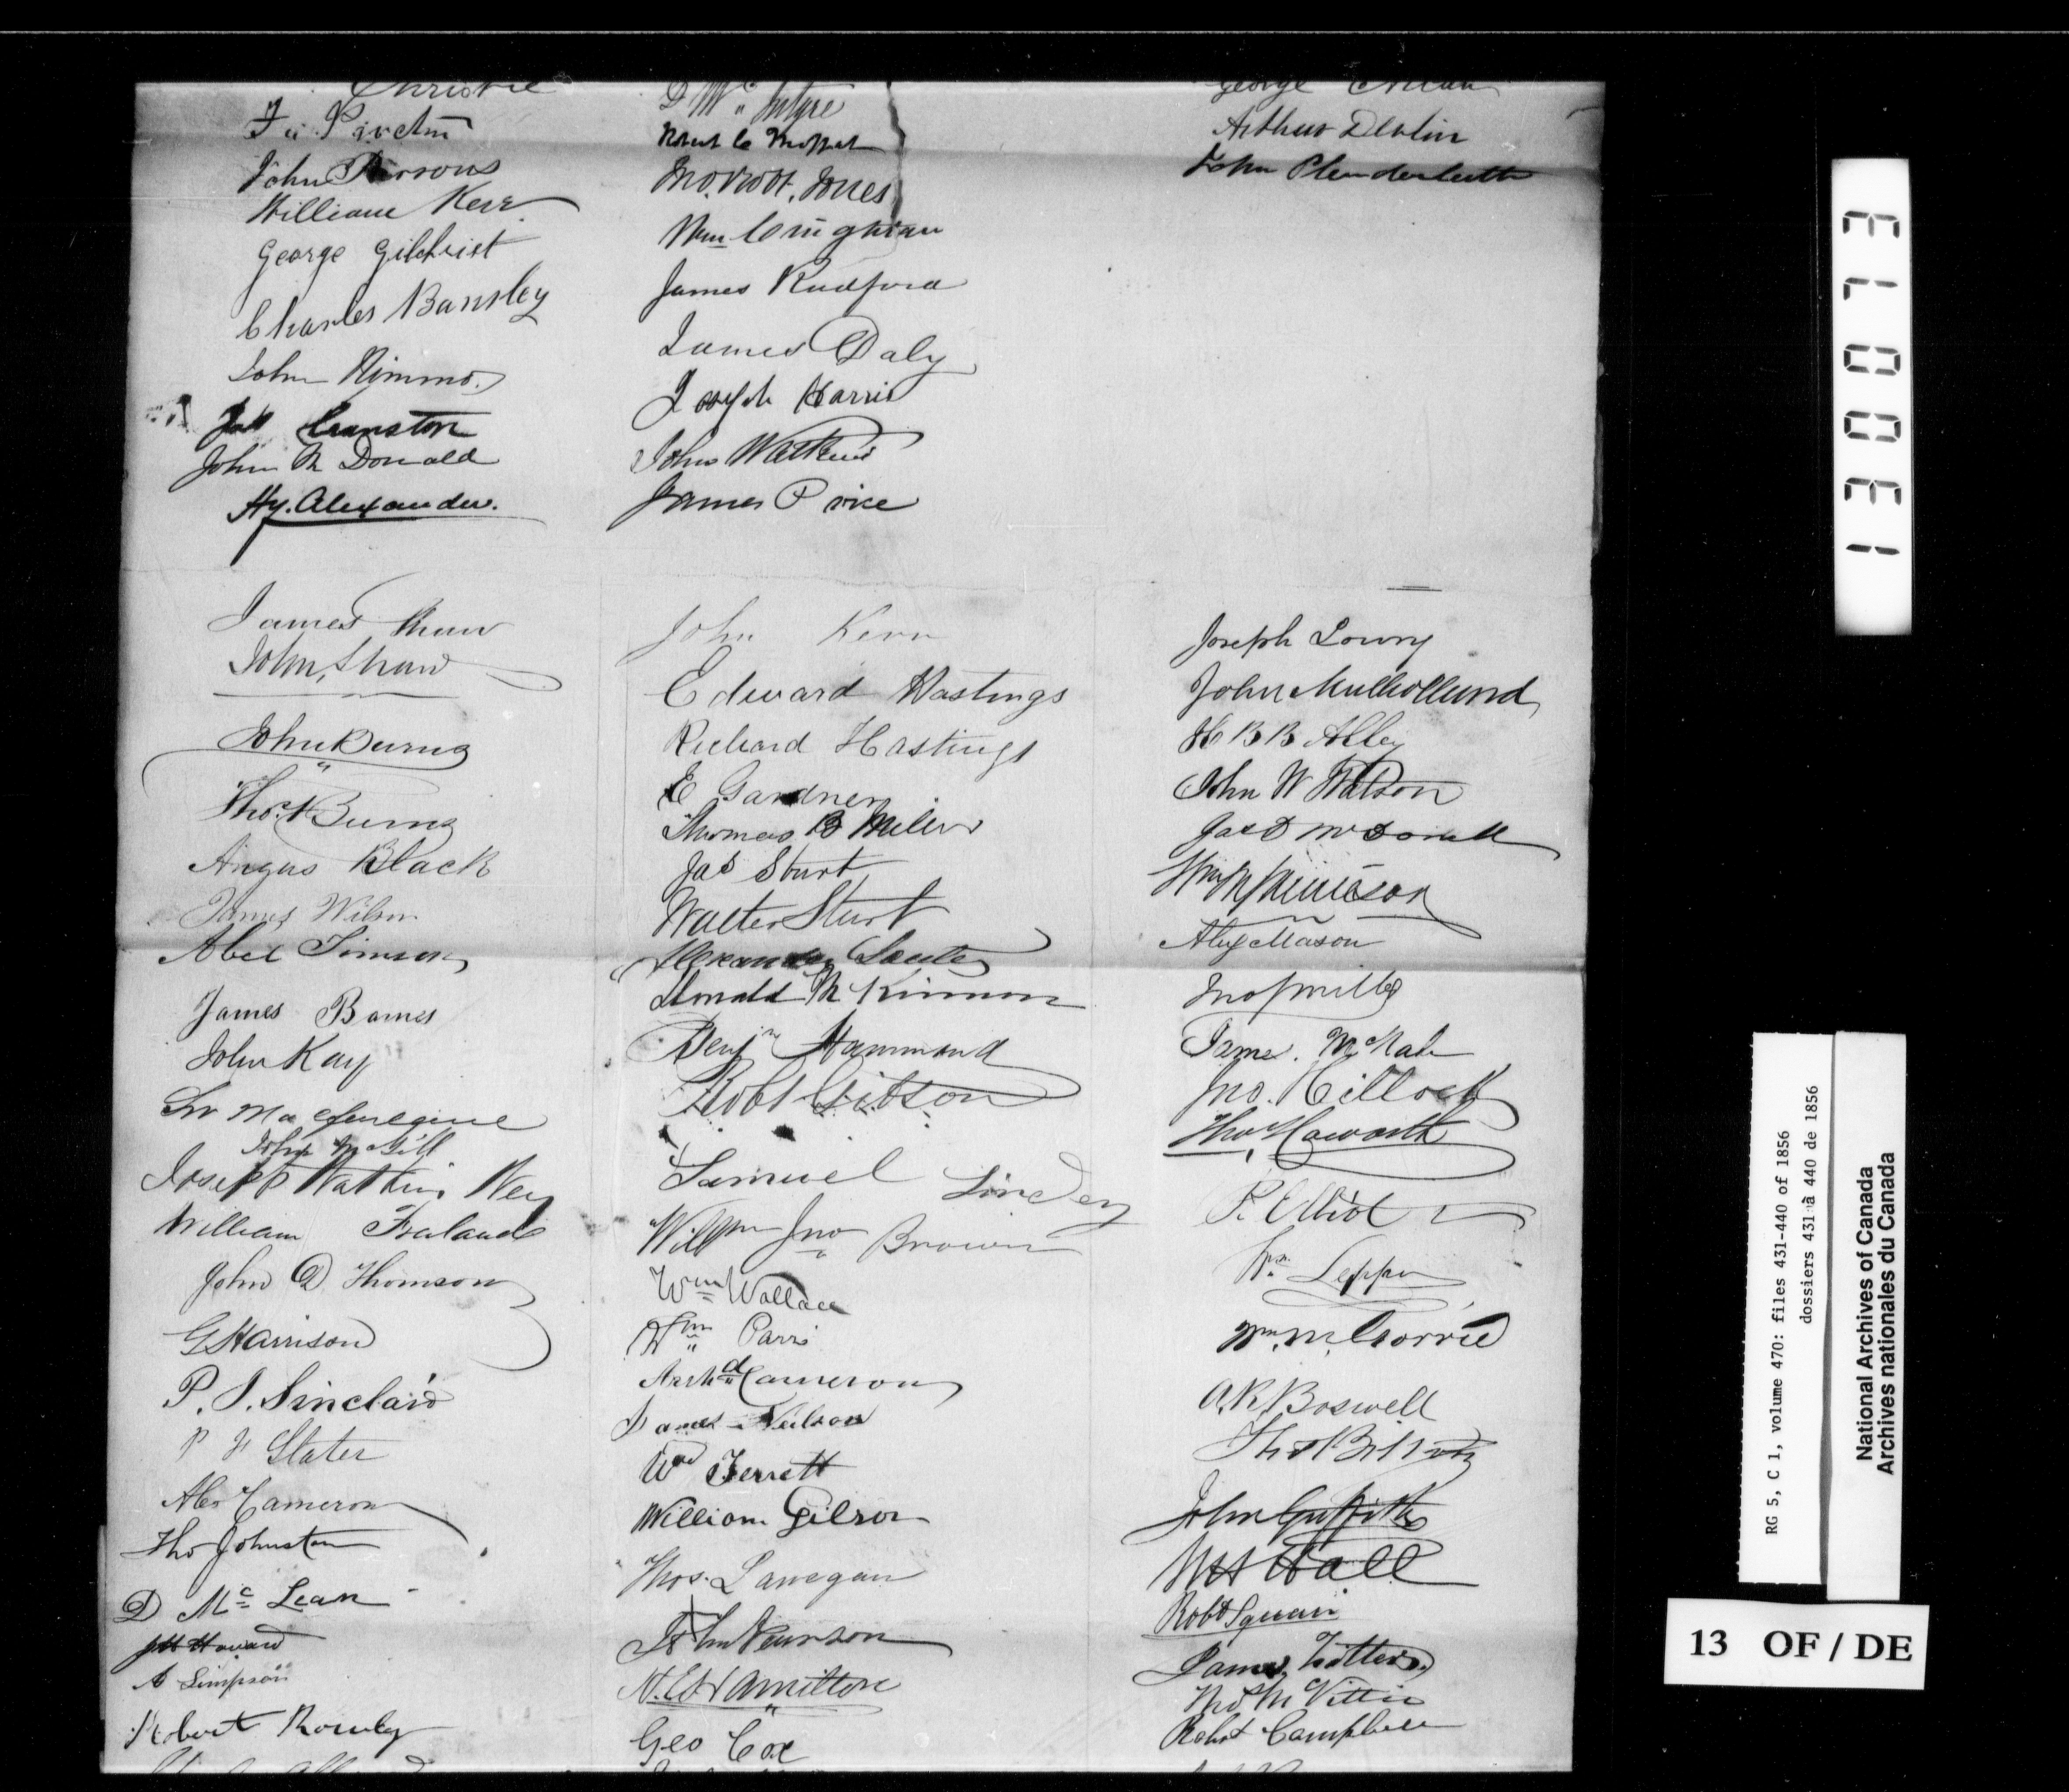 Christie
John Parsons
William Kerr
George Gilchrist
Charles Bansley
John Nimmo.
Jas Cranston
John Mc Donald
Hy. Alexander.
James Shaw
John Shaw
John Burns
Thos. Burns
Angus Black
James Wilson
Abel Simson
James Barnes
John Kay
John McGill
Joseph Watkins
William
John D. Thomson
G Harrison
P. J. Sinclair
Slater
Alex Cameron
Tho Johnston
D Mc Lean
JH Howard
A Simpson
Robert Rowley
D Mc Intyre
Robert C Moffat
Jno. Jones
Wm
James Radford
James Daly
Joseph Harris
John Watkins
James Price
John Kerr
Edward Hastings
Richard Hastings
E Gardner
Thomas B Miller
Jas Sturt
Walter Sturt
Alexander
Donald Mc Kinnon
Benjn Hammond
Robt Gibson
Samuel Linden
Willm Jno Brown
Wm Wallace
Wm Parr
Archd Cameron
James Neilson
Wm Ferrett
William Gilson
Thos. Lanegan
John Pearson
Hamilton
Geo Cox
George
Arthur Devlin
John Plenderleith
Joseph Lowry
John Mulholland
H B B Alley
John W Watson
Jas D McDonell
Wm
Alex Mason
Jno
James
Jno. Hillock
Tho Haworth
P. Elliot
Wm Lepper
Wm. M. Gorrie
A. R. Boswell
Tho
John Griffith
Hall
Robt Squair
James Trotter
Thos Mc Vittie
Robt Campbell
13001
RG 5, C 1, volume 470: files 431-440 of 1856
dossiers 431 à 440 de 1856
National Archives of Canada
Archives nationales du Canada
13 OF / DE